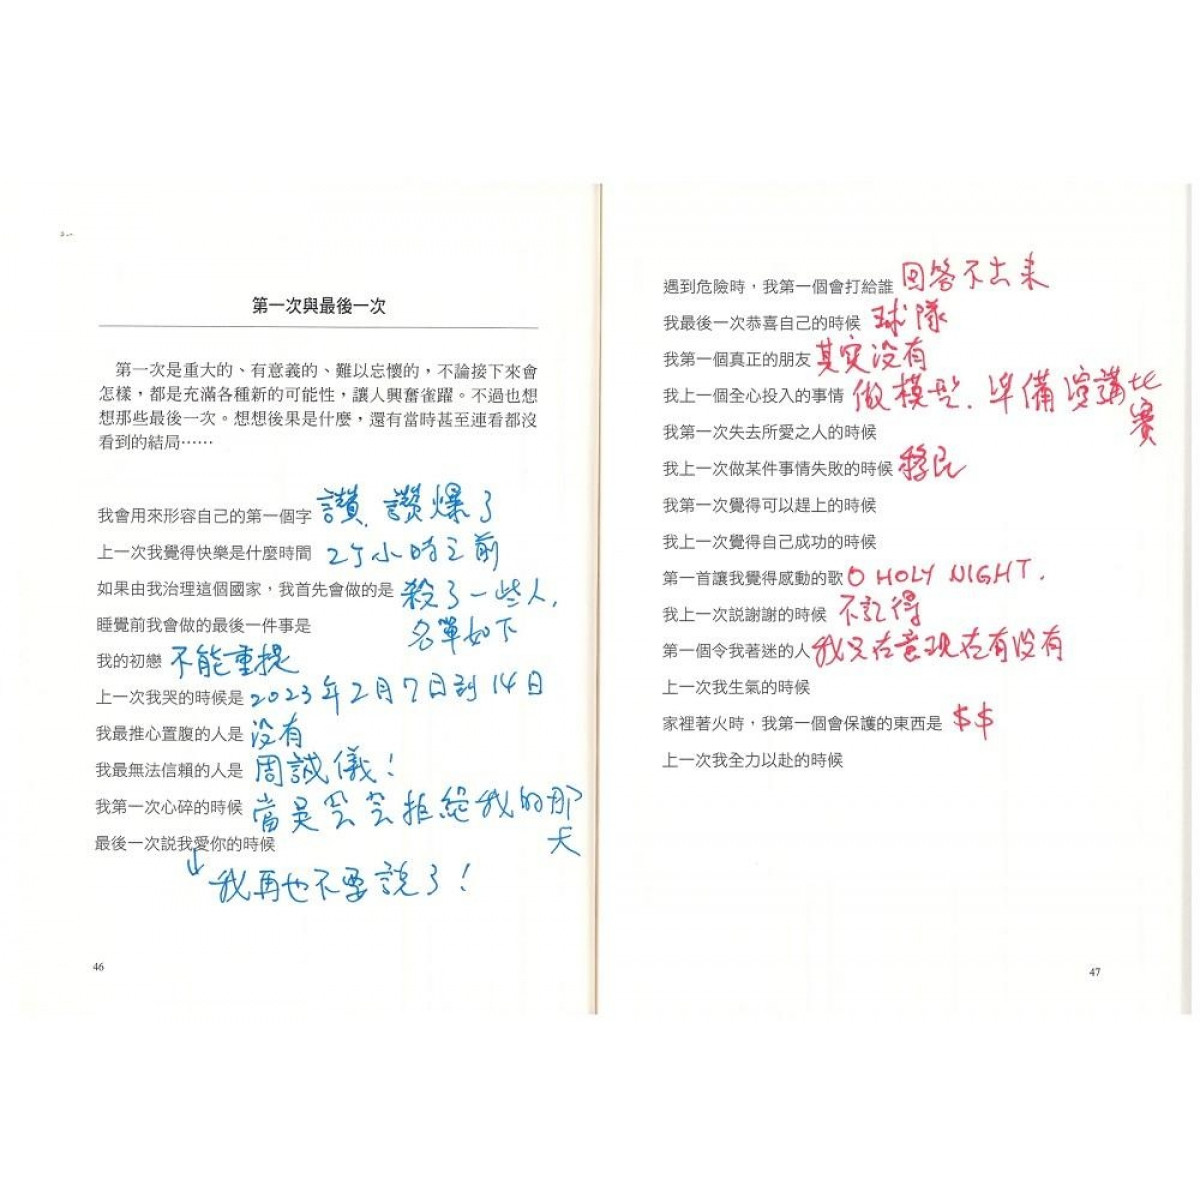 第一次與最後一次
第一次是重大的、有意義的、難以忘懷的，不論接下來會
怎樣，都是充滿各種新的可能性，讓人興奮雀躍。不過也想
想那些最後一次。想想後果是什麼，還有當時甚至連看都沒
看到的結局……
我會用來形容自己的第一個字 讚、讚爆了
上一次我覺得快樂是什麼時間 25小時之前
如果由我治理這個國家，我首先會做的是 殺了一些人，
睡覺前我會做的最後一件事是 名單如下
我的初戀 不能重提
上一次我哭的時候是 2023年2月7日到14日
我最推心置腹的人是 沒有
我最無法信賴的人是 周誠儀！
我第一次心碎的時候 當吳芸芸拒絕我的那
天
最後一次説我愛你的時候
↓我再也不要說了！
46
遇到危險時，我第一個會打給誰 回答不出來
我最後一次恭喜自己的時候 球隊
我第一個真正的朋友 其实没有
我上一個全心投入的事情 做模型、準備演講比
賽
我第一次失去所愛之人的時候
我上一次做某件事情失敗的時候 移民
我第一次覺得可以趕上的時候
我上一次覺得自己成功的時候
第一首讓我覺得感動的歌 O HOLY NIGHT.
我上一次説謝謝的時候 不記得
第一個令我著迷的人 我只在意現在有没有
上一次我生氣的時候
家裡著火時，我第一個會保護的東西是 $$
上一次我全力以赴的時候
47